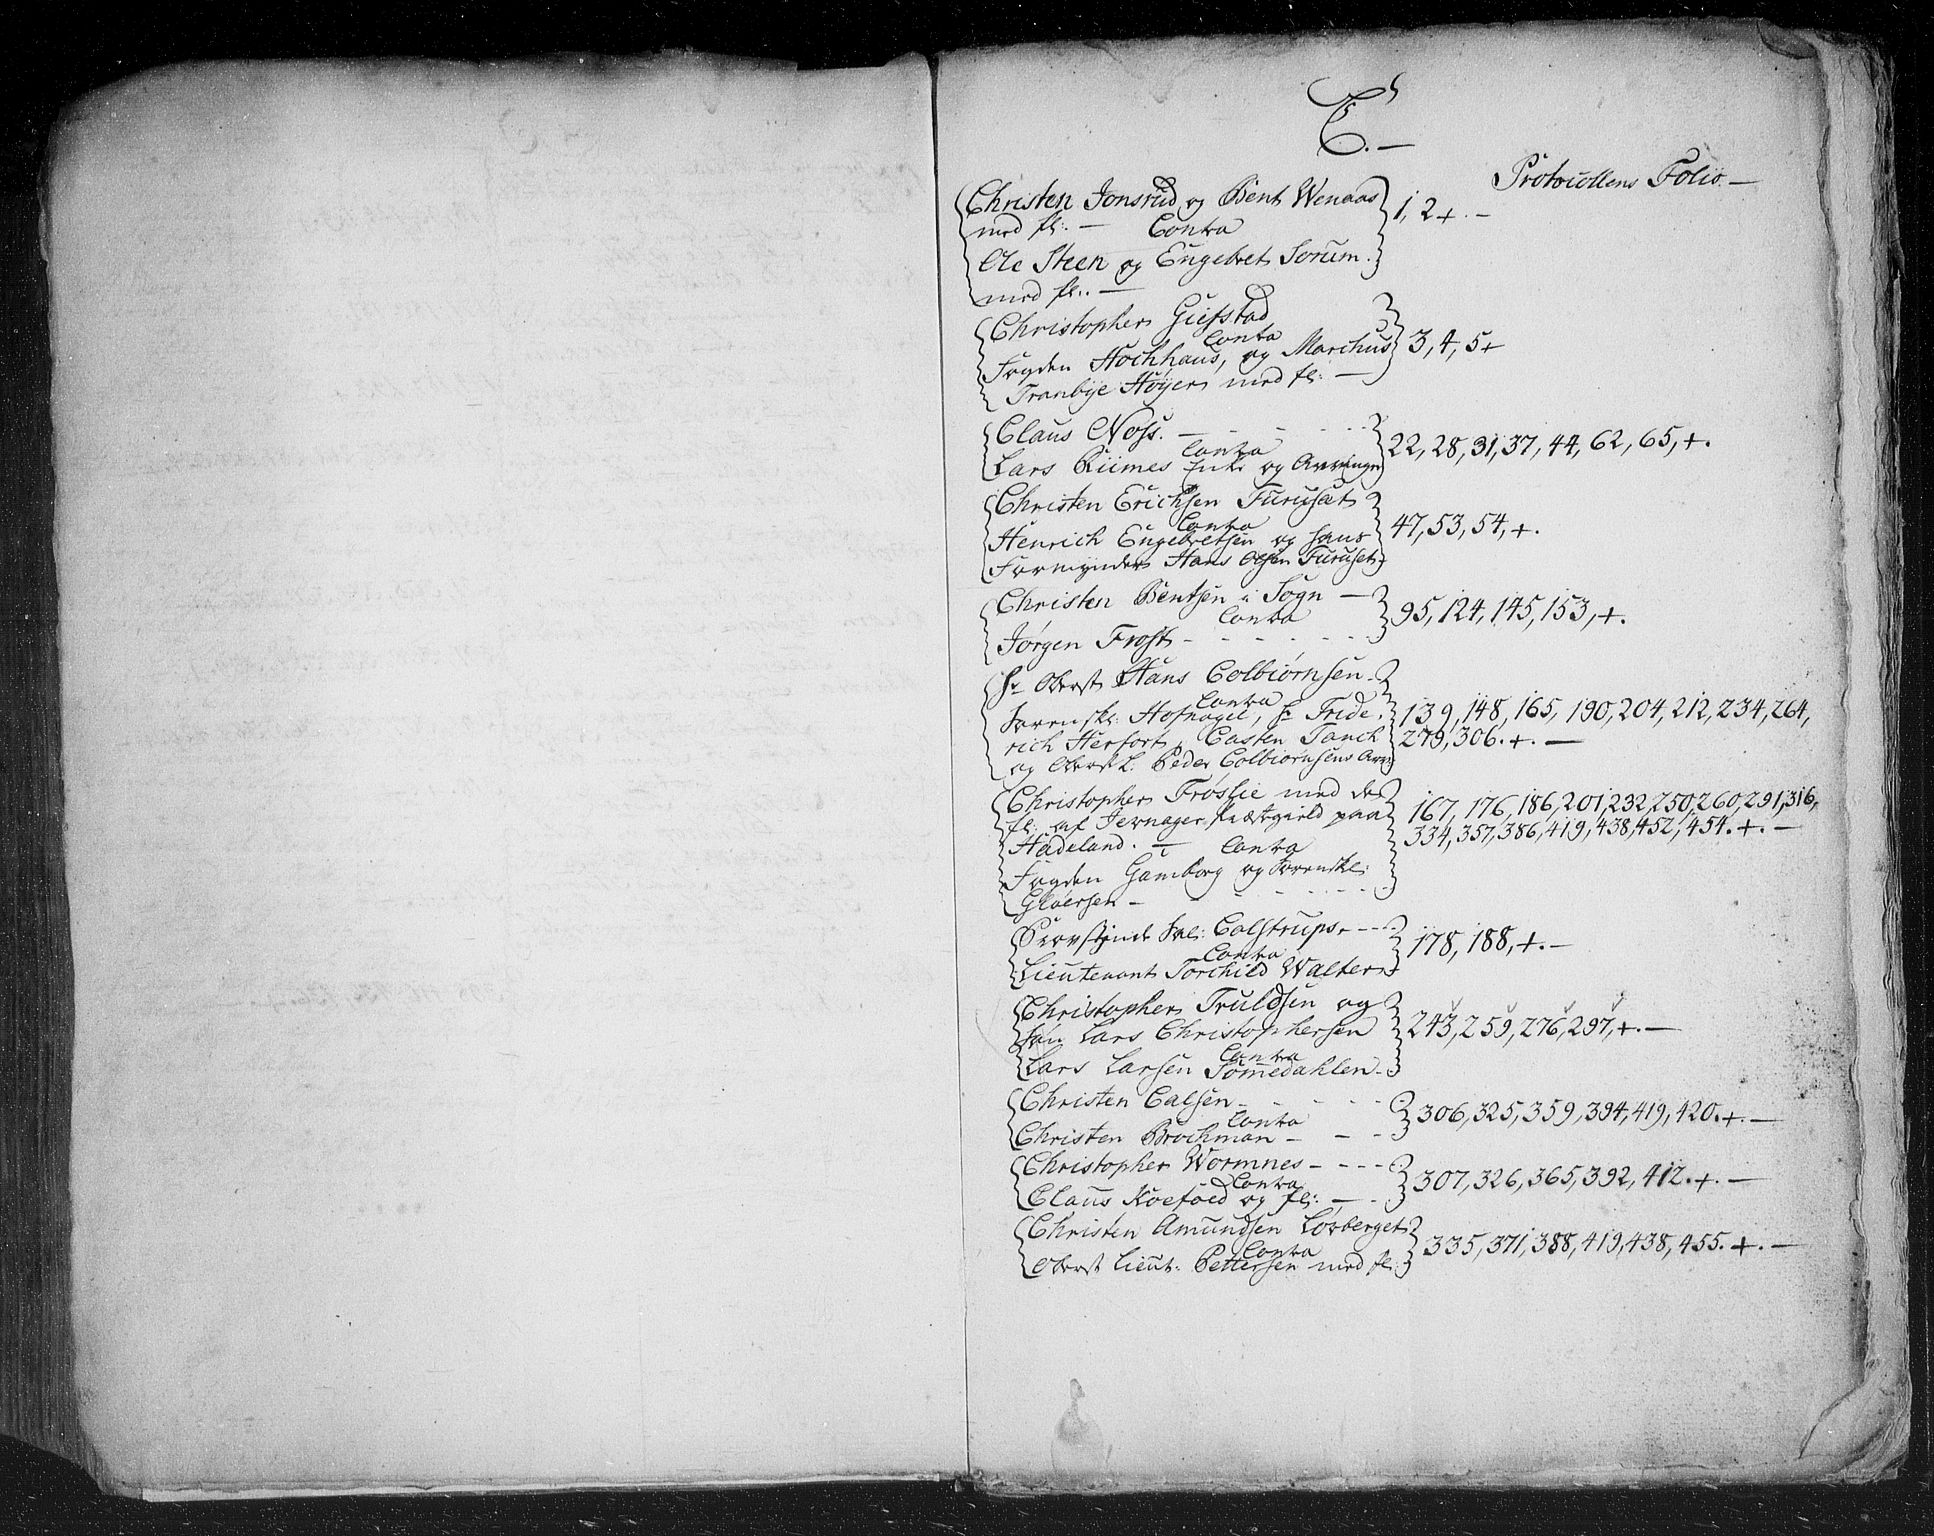 C.
Protocollens Folio
Christen Jonsrud og Bent Wenaas
med fl: Contra 1, 2 +.
Ole Steen og Engebret Sorum.
med fl:
Christopher Giefstad
Contra
Fogden Hochhaus, og Marchus 3, 4, 5 +
Tranbye Høyer med fl:
Claus Noss.
Contra 22, 28, 31, 37, 44, 62, 65, +.
Lars Riimes Enke og Arvinger
Christen Erichsen Furuset
Contra
Henrich Engebretsen og hans 47, 53, 54, +.
Formynder Hans Olsen Furuset
Christen Bentsen i Sogn
Contra 95, 124, 145, 153, +.
Jørgen Frost
Hr Oberst Hans Colbiørnsen
Contra
Sorenskr: Hofnagel, Hr Fride- 139, 148, 165, 190, 204, 212, 234, 264,
rich Herfort, Casten Tanch 279, 306. +.
og Oberstl. Peder Colbiørnsens Arv:
Christopher Frøslie med de 167, 176, 186, 201, 232, 250, 260, 291, 316,
fl: af Jevnager Præstegield paa 334, 357, 386, 419, 438, 452, 454. +.
Hadeland. Contra
Fogden Gamborg og Sorenskr:
Gløersen
Provstinde Sal: Colstrups,
Contra 178, 188, +.
Lieutenant Torchild Walter
Christopher Truldsen og
Søn Lars Christophersen 243, 259, 276, 297, +.
Contra
Lars Larsen Tømmedahlen
Christen Calsen
Contra 306, 325, 359, 394, 419, 420. +.
Christen Brochman
Christopher Wormnes
Contra 307, 326, 365, 392, 412. +.
Claus Koefoed og fl:
Christen Amundsen Løvberget
Contra 335, 371, 388, 419, 438, 455. +.
Oberst Lieut: Pettersen med fl: